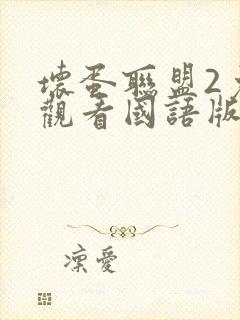 壞蛋聯盟2
觀看國語版
凜愛